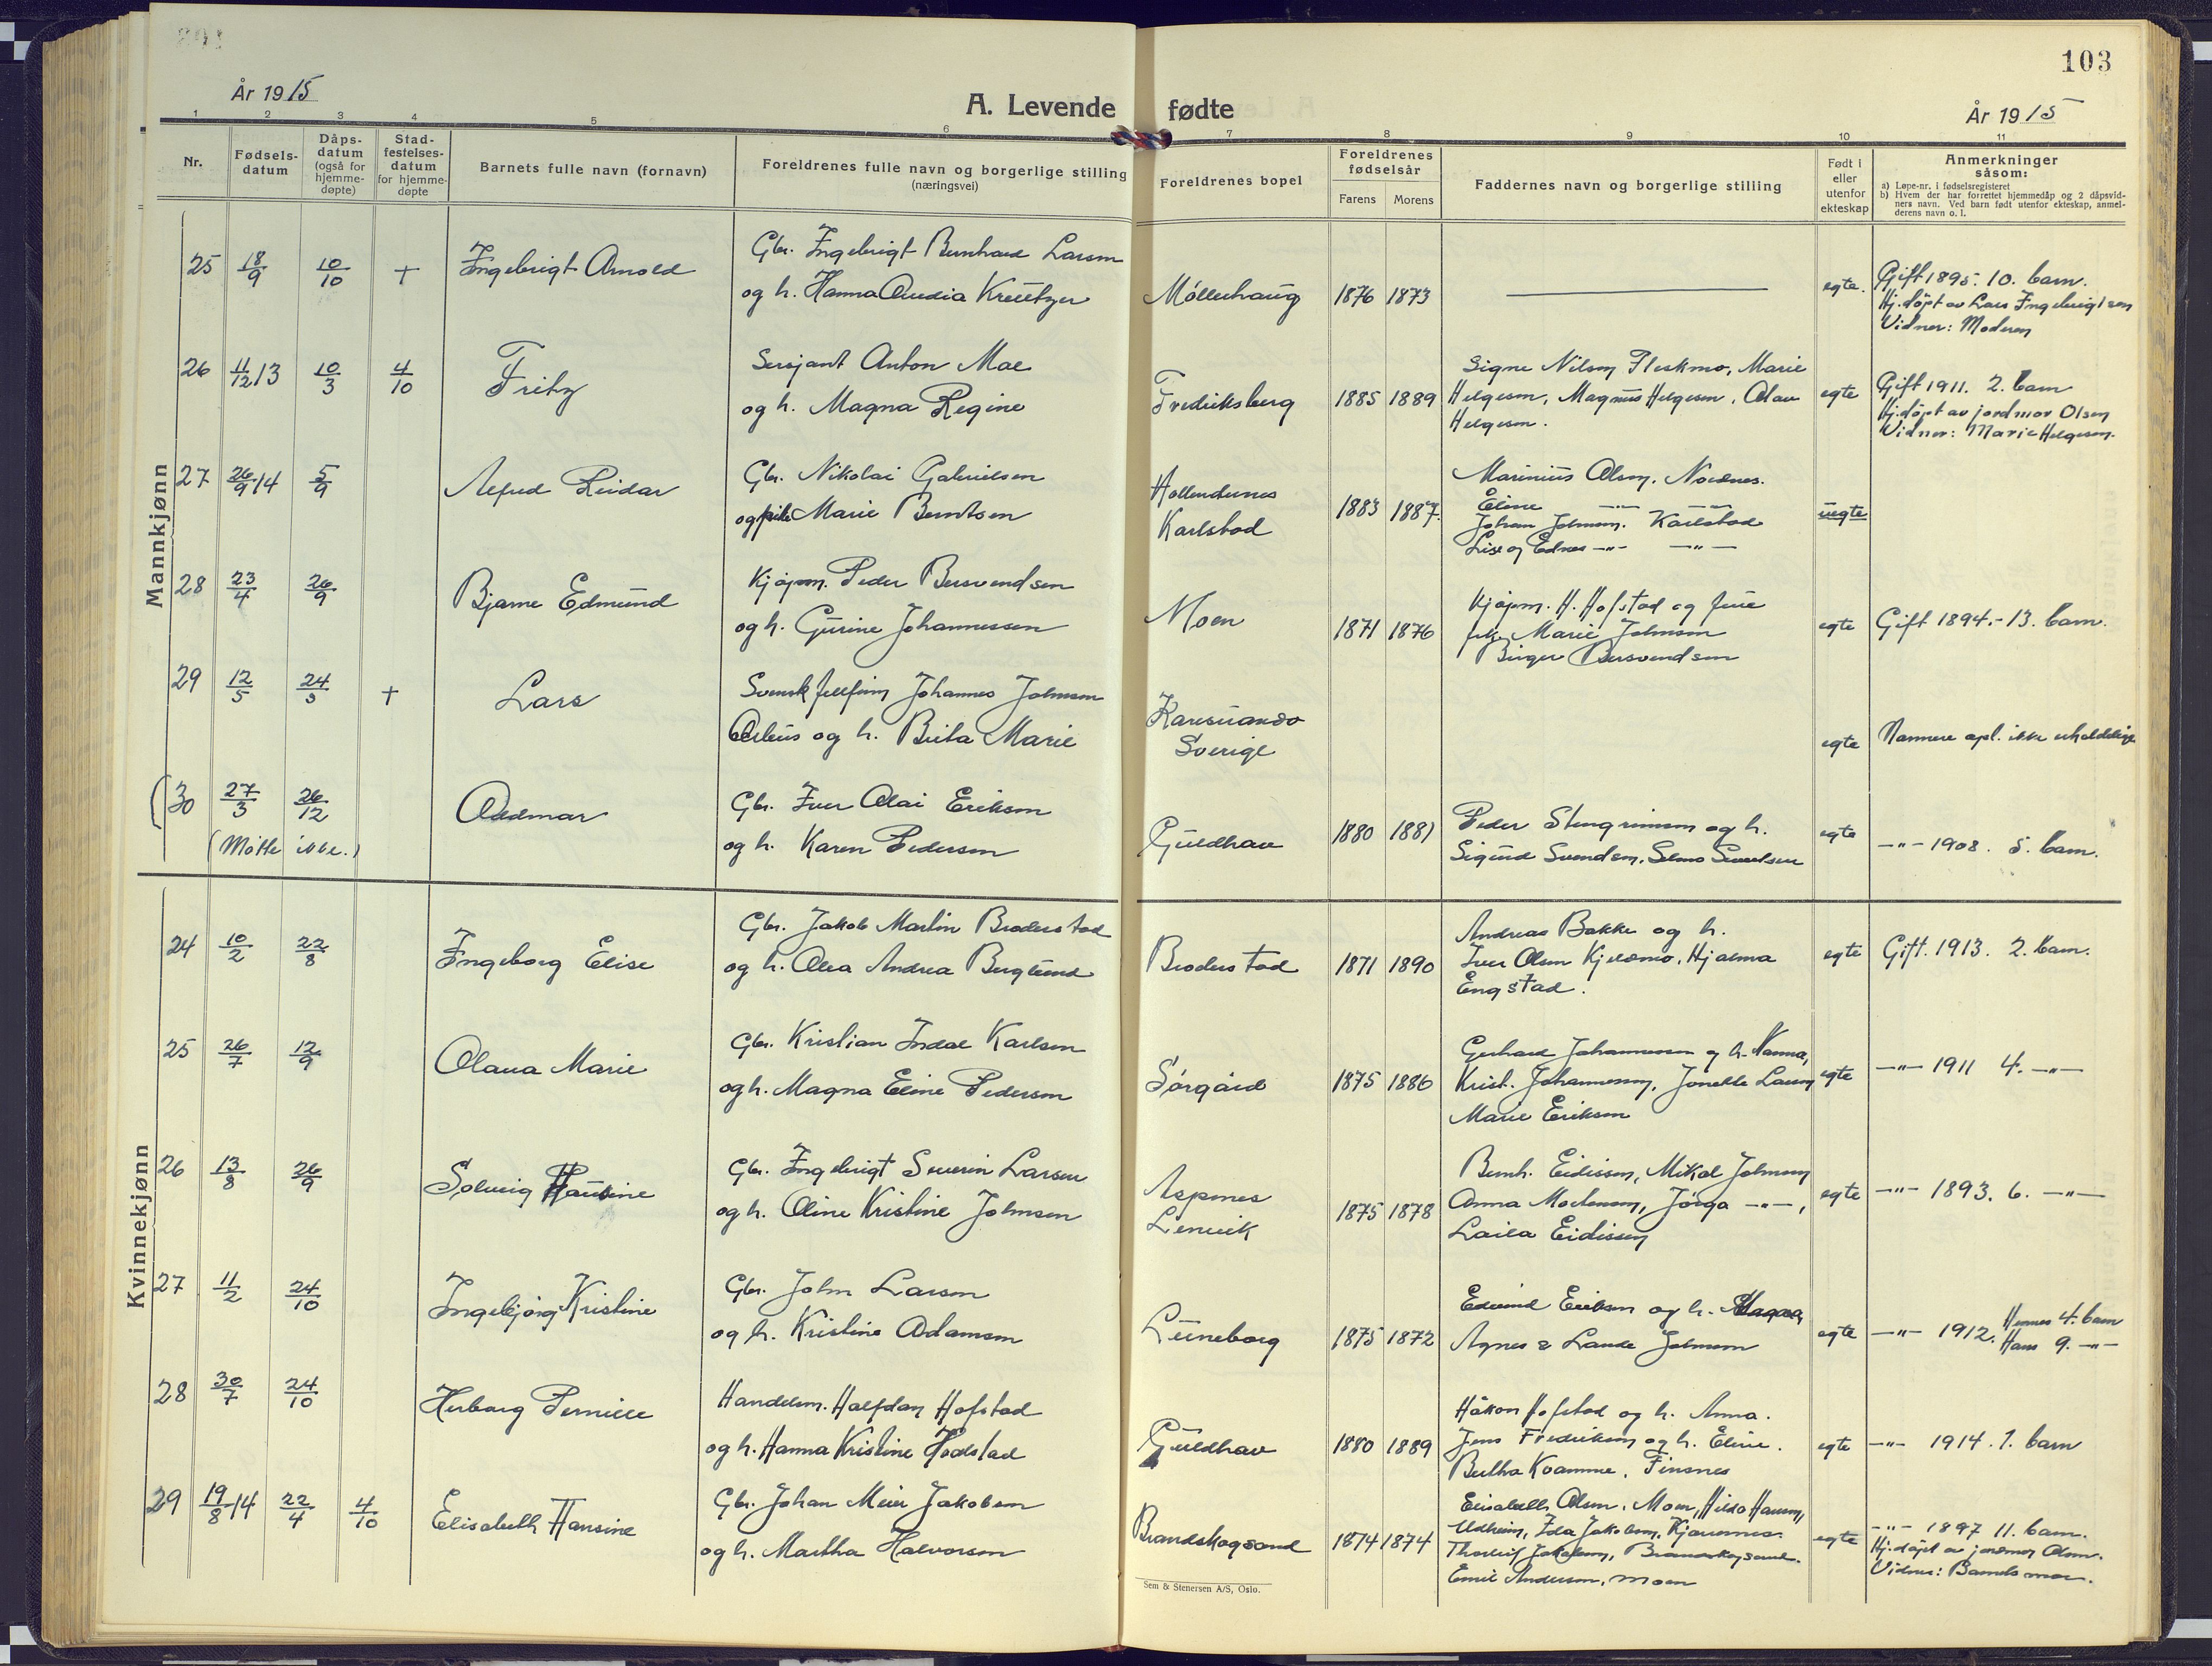 103
År 1915
A. Levende fødte
År 1915
1 2 3 4 5 6 7 8 9 10 11
Nr.
Fødsels-
datum
Dåps-
datum
(også for
hjemme-
døpte)
Stad-
festelses-
datum
for hjemme-
døpte
Barnets fulle navn (fornavn)
Foreldrenes fulle navn og borgerlige stilling
(næringsvei)
Foreldrenes bopel
Foreldrenes
fødselsår
Farens Morens
Faddernes navn og borgerlige stilling
Født i
eller
utenfor
ekteskap
Anmerkninger
såsom:
a) Løpe-nr. i fødselsregisteret
b) Hvem der har forrettet hjemmedåp og 2 dåpsvid-
ners navn. Ved barn født utenfor ekteskap, anmel-
derens navn o. l.
Mannkjønn
25 18/9 10/10 + Ingebrigt Arnold
Gbr. Ingebrigt Bernhard Larsen
og h. Hanna Kreutzer
Møllerhaug 1876 1873 egte.
Gift 1895. 10. barn.
Hj. døpt av Lars Ingebrigtsen
Vidner: Moderen
26 11/12 13 10/3 4/10 Fritz
Sersjant Anton Moe
og h. Magna Regine
Fredriksberg 1885 1889
Signe Nilsen Fleskmo, Marie
Helgesen, Magnus Helgesen, Olav
Helgesen.
egte
Gift 1911. 2. barn
Hj. døpt av jordmor Olsen
Vidner: Marie Helgesen.
27 26/9 14 5/9 Alfred Reidar
Gbr. Nikolai Gabrielsen
og pike Marie Berntsen
Hollendernes
Karlstad
1883 1887.
Marinius Olsen, Nordnes.
Eline —"— —"—
Johan Johnsen. Karlstad
Lise og Edner —"— —"—
uegte
28 23/4 26/9 Bjarne Edmund
Kjøpm. Peder Bersvendsen
og h. Gurine Johannessen
Moen 1871 1876
Kjøpm. H. Hofstad og frue
frk. Marie Johnsen
Birger Bersvendsen
egte Gift 1894.- 13. barn.
29 12/5 24/5 + Lars
Svensk fjellfinn Johannes Johnsen
og h. Brita Marie
Karesuando
Sverige
egte Nærmere opl. ikke erholdelige
30 27/3 26/12 Oddmar
(Møtte ikke.)
Gbr. Iver Olai Eriksen
og h. Karen Pedersen
Guldhav 1880 1881
Peder Stengrimsen og h.
Sigurd Svendsen, Selma Svendsen
egte —"— 1908. 5. barn.
Kvinnekjønn
24 10/2 22/8 Ingeborg Elise
Gbr. Jakob Martin Broderstad
og h. Olea Andrea Berglund
Broderstad 1871 1890
Andreas Bakke og h.
Iver Olsen Kjeldmo, Hjalma
Engstad.
egte Gift. 1913. 2. barn.
25 26/7 12/9 Olaua Marie
Gbr. Kristian Indal Karlsen
og h. Magna Eline Pedersen
Sørgård 1875 1886
Gerhard Johannessen og h. Hanna,
Krist. Johannessen, Jonette Larsen
Marie Eriksen
egte —"— 1911 4. —"—
26 13/8 26/9 Solveig Hansine
Gbr. Ingebrigt Severin Larsen
og h. Oline Kristine Johnsen
Aspenes
Lenvik
1875 1878
Bernh. Eidissen, Mikal Johnsen
Anna Mortensen, Jørga —"—,
Laila Eidissen
egte —"— 1893. 6. —"—
27 11/2 24/10 Ingebjørg Kristine
Gbr. John Larsen
og h. Kristine Adamsen
Luneborg 1875 1872
Edvind Eriksen og h. Magna
Agnes & Laude Johnsen
egte —"— 1912. Hennes 4. barn
Hans 9. —"—
28 30/7 24/10 Herborg Pernille
Handelsm. Halfdan Hofstad
og h. Hanna Kristine Hofstad
Guldhav 1880 1889
Håkon Hofstad og h. Anna.
Jens Fredriksen og h. Eline.
Bertha Kvamme, Finsnes
egte —"— 1914. 1. barn
29 19/8 14 22/4 4/10 Elisabeth Hansine
Gbr. Johan Meier Jakobsen
og h. Martha Halvorsen
Brandskogsand 1874 1874
Elisabeth Olsen, Moen, Hilda Hansen,
Udheim, Ida Jakobsen, Kjønnes.
Thorleif Jakobsen, Brandskogsand.
Emil Andersen, Moen
egte —"— 1897 11. barn.
Hj. døpt av jordmor Olsen.
Vidner: Barnets mor.
Sem & Stenersen A/S, Oslo.